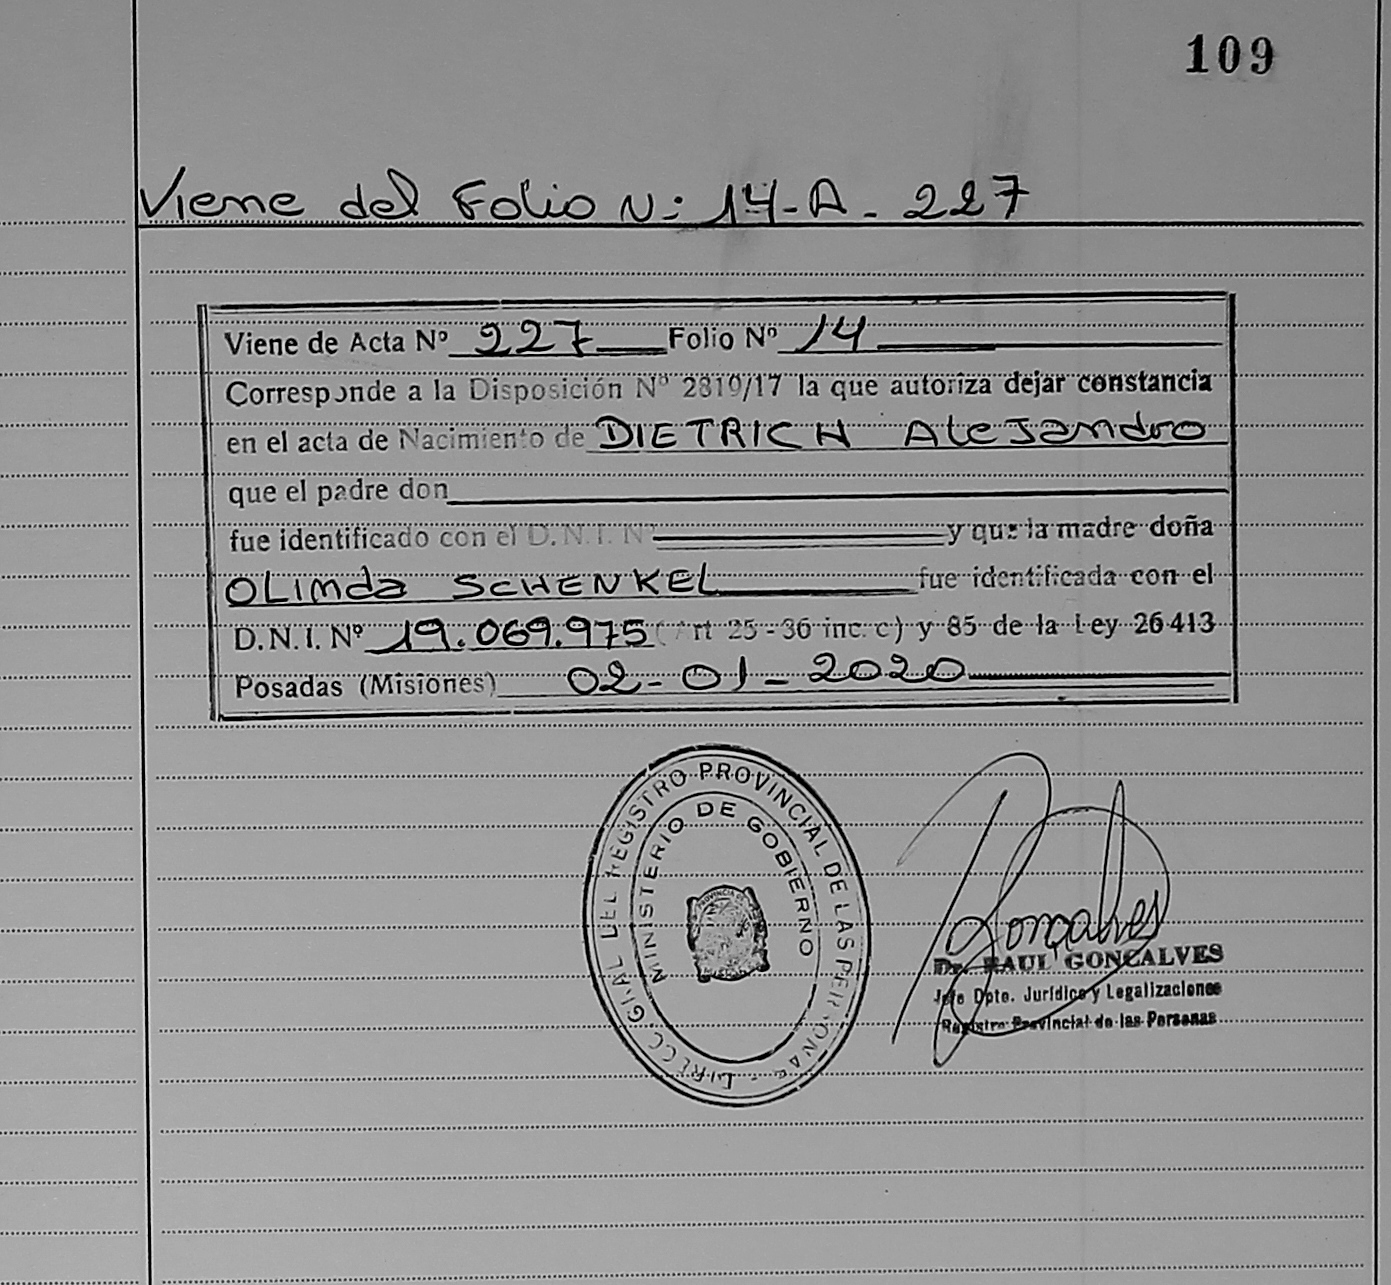 109
Viene del Folio N: 14-A-227
Viene de Acta Nº 227 Folio Nº 14
Corresponde a la Disposición Nº 2810/17 la que autoriza dejar constancia
en el acta de Nacimiento de DIETRICH Alejandro
que el padre don
fue identificado con el D.N.I. Nº y que la madre doña
OLIMda SCHENKEL fue identificada con el
D.N.I. Nº 19.069.975 (Art 25-36 inc. c) y 85 de la Ley 26413
Posadas (Misiones) 02-01-2020
DIRECC. GRAL DEL REGISTRO PROVINCIAL DE LAS PERSONAS
MINISTERIO DE GOBIERNO
Gonçalves
Dr. RAUL GONÇALVES
Jefe Dpto. Jurídico y Legalizaciones
Registro Provincial de las Personas